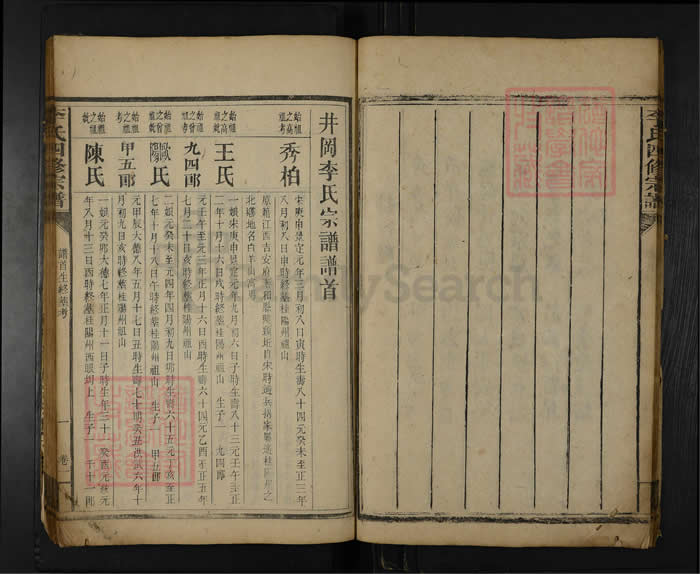 李氏四修宗譜
井岡李氏宗譜譜首
始祖之高祖考
秀柏
宋庚申景定元年三月初八日寅時生壽八十四元癸未至正三年
八月初八日申時終葬桂陽州祖山
原籍江西吉安府泰和
北鄉地名白羊山
始祖之高祖妣
王氏
一娘宋庚申景定元年九月初六日子時生壽八十三元壬午至正
二年十月十六日戌時終葬桂陽州祖山 生子一 九四郎
始祖之曾祖考
九四郎
元壬午至元三年正月十六日酉時生壽六十四元乙酉至正五年
七月二十日亥時終葬桂陽州祖山
始祖之曾祖妣
歐陽氏
二娘元癸未至元四年四月初九日卯時生壽六十五元丁亥至正
七年十月十八日午時終葬桂陽州祖山 生子一 甲五郎
始祖之祖考
甲五郎
元甲辰大德八年五月十七日丑時生壽七十明癸丑洪武六年十
月初九日亥時終葬桂陽州祖山
始祖之祖妣
陳氏
一娘元癸卯大德七年正月十一日子時生年三十一癸酉元統元
年八月十三日酉時終葬桂陽州西眼圳上 生子一 千十一郎
李氏四修宗譜
譜首生終墓考
一
卷一
FamilySearch